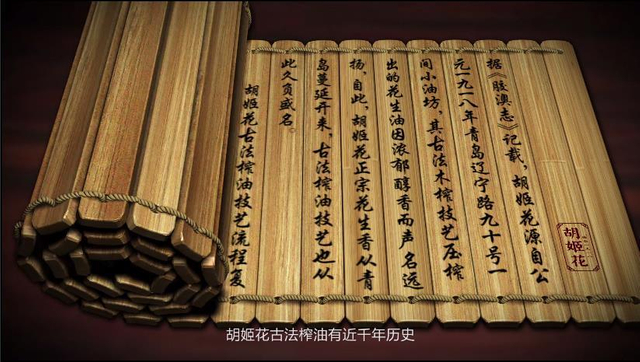 据《胶澳志》记载，胡姬花源自公
元一九一八年青岛辽宁路九十号一
间小油坊，其古法木榨技艺压榨
出的花生油因浓郁醇香而声名远
扬，自此，胡姬花正宗花生香从青
岛蔓延开来，古法榨油技艺也从
此久负盛名。
胡姬花古法榨油技艺流程复
胡姬花
胡姬花古法榨油有近千年历史